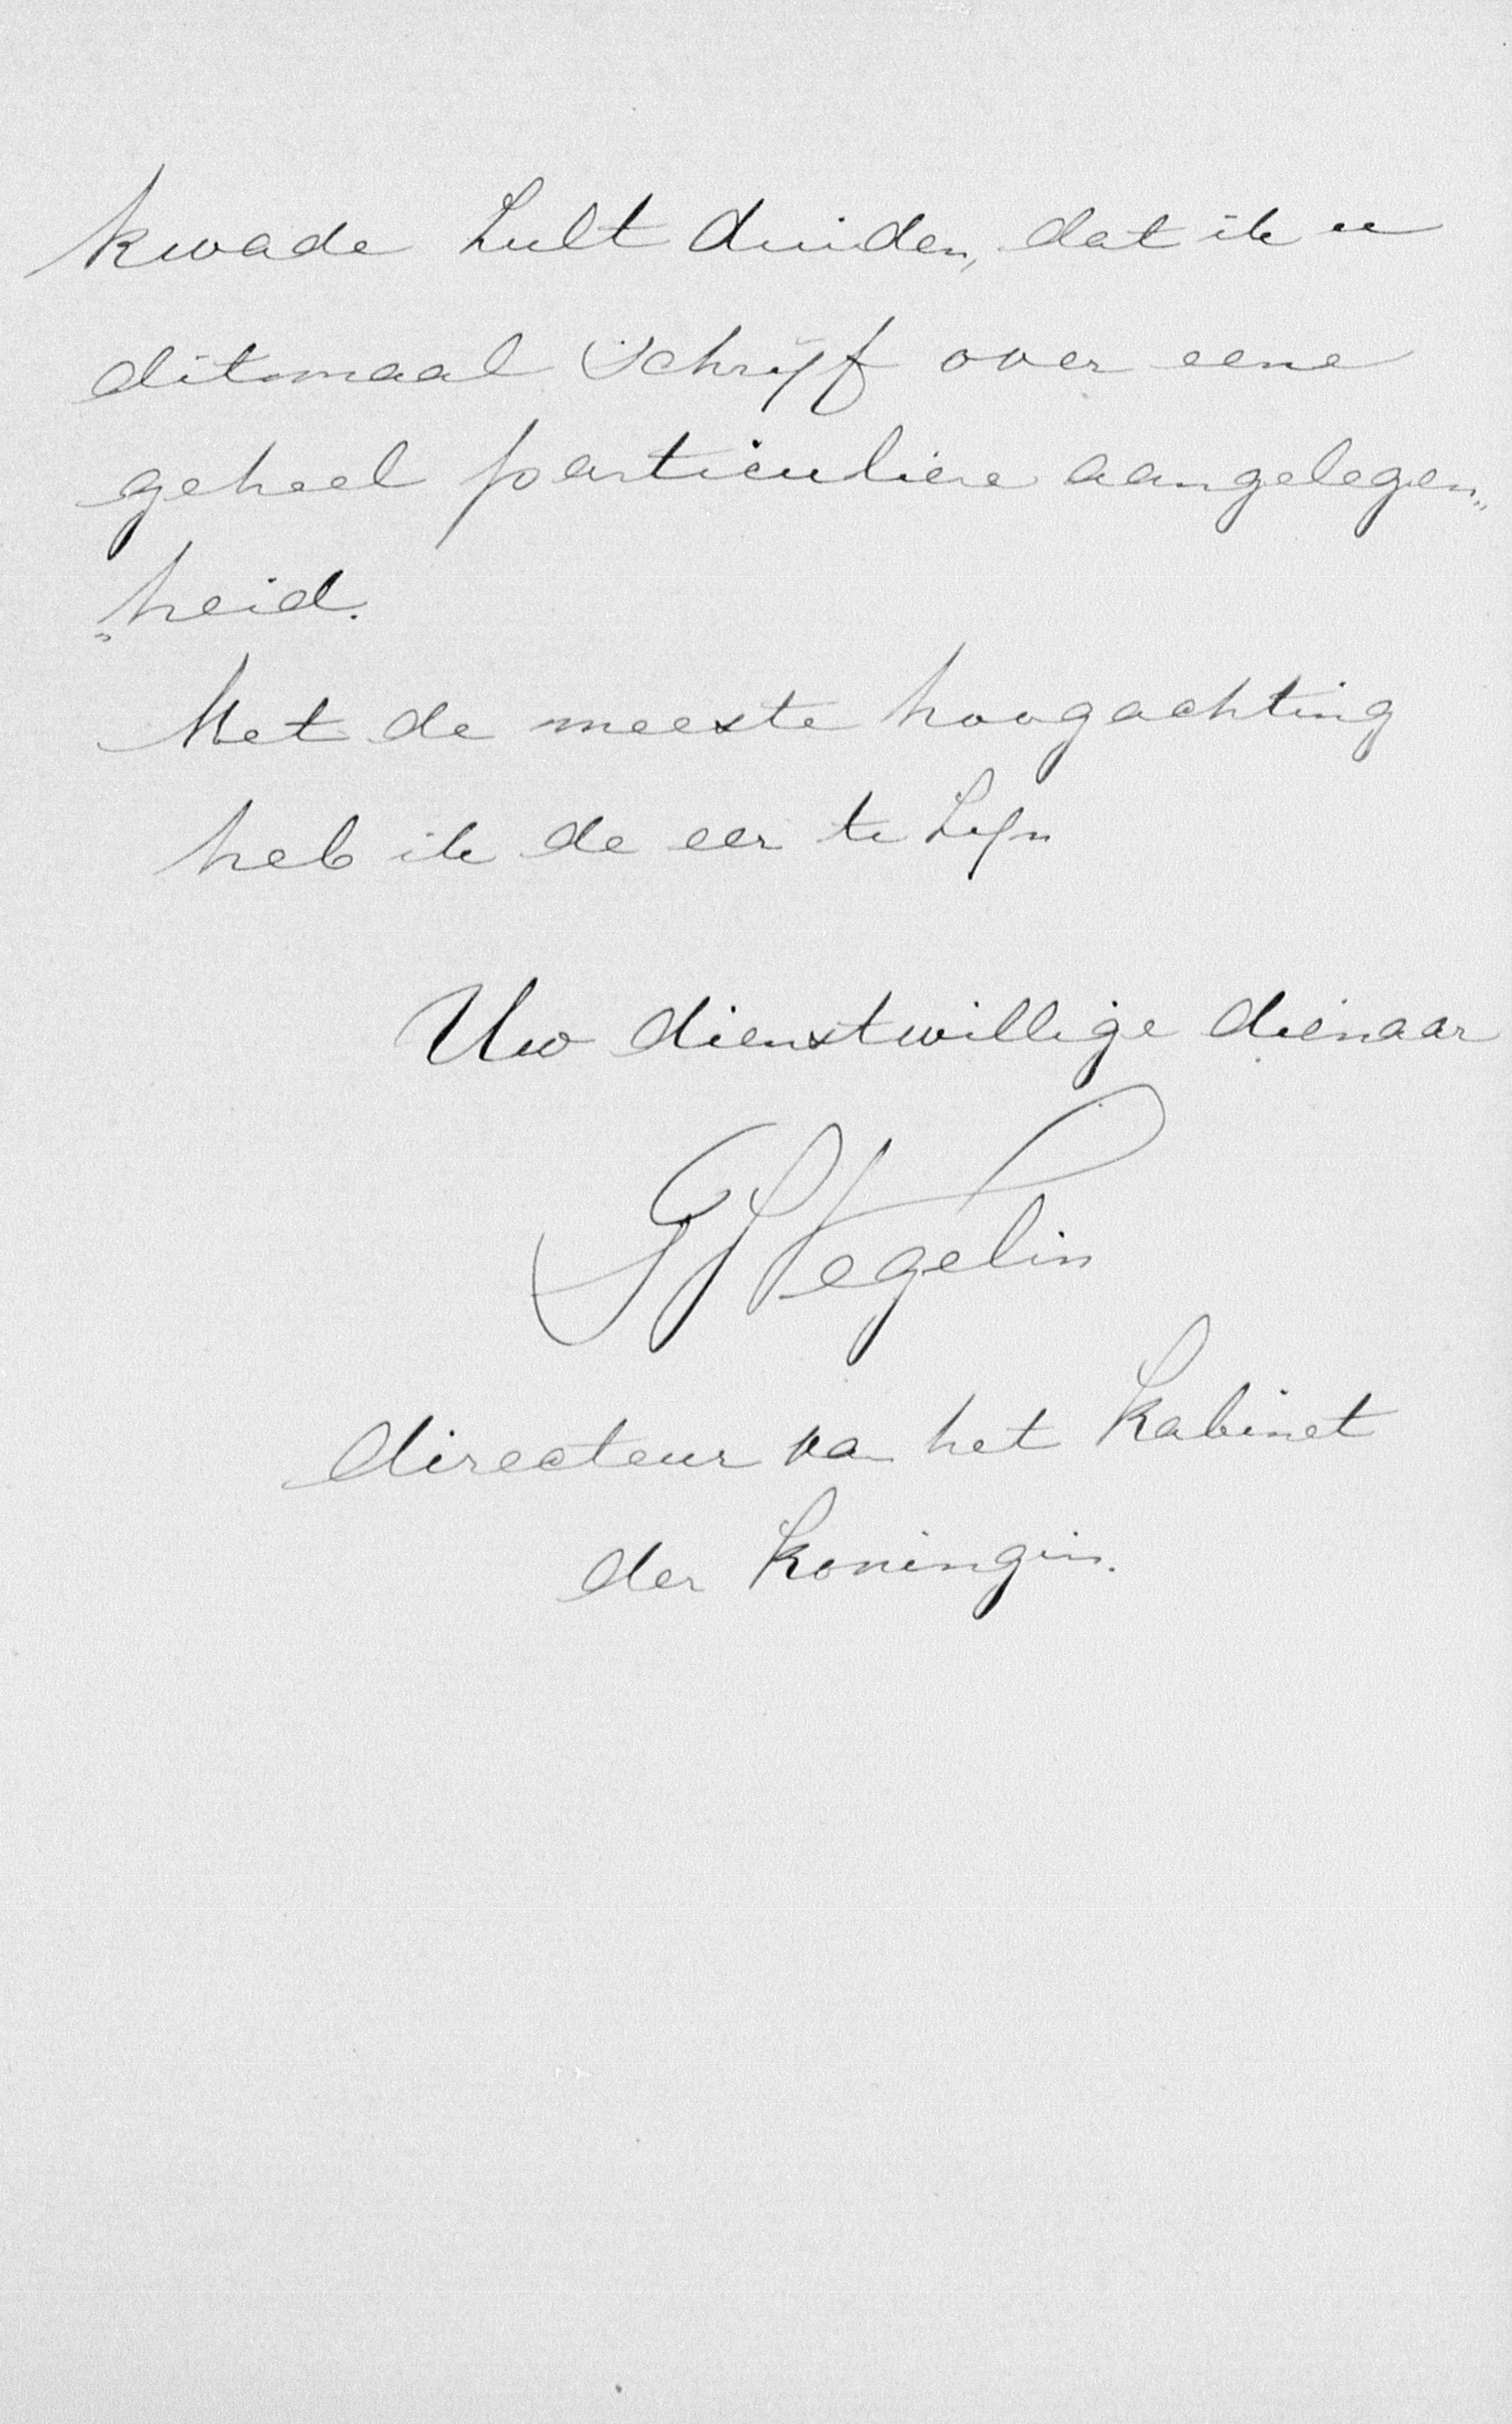 kwade zult duiden, dat ik u
ditmaal schrijf over eene
geheel particuliere aangelegen„
„heid.
Met de meeste hoogachting
heb ik de eer te zijn
Uw dienstwillige dienaar
Vegelin
directeur van het Kabinet
der Koningin.